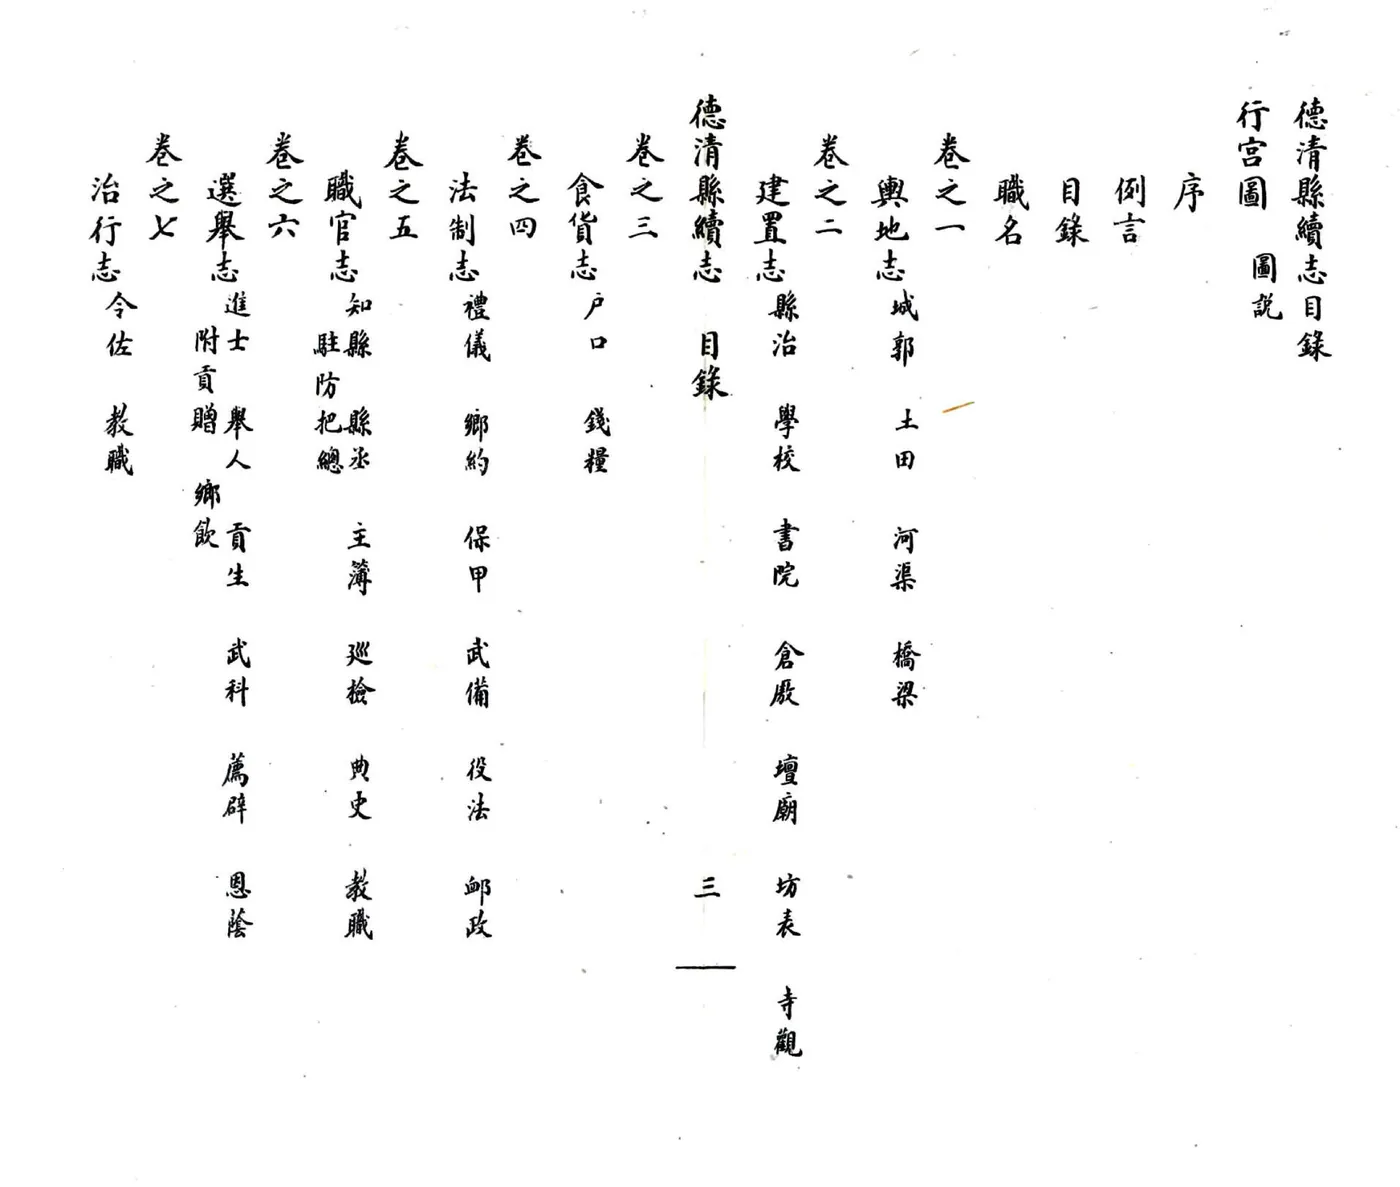 德清縣續志目錄
行宮圖 圖説
序
例言
目錄
職名
卷之一
輿地志 城郭 土田 河渠 橋梁
卷之二
建置志 縣治 學校 書院 倉厫 壇廟 坊表 寺觀
德清縣續志 目錄 三
卷之三
食貨志 户口 錢糧
卷之四
法制志 禮儀 鄉約 保甲 武備 役法 邮政
卷之五
職官志 知縣 縣丞 主簿 巡檢 典史 教職
駐防把總
卷之六
選舉志 進士 舉人 貢生 武科 薦辟 恩蔭
附貢贈 鄉飲
卷之七
治行志 令佐 教職